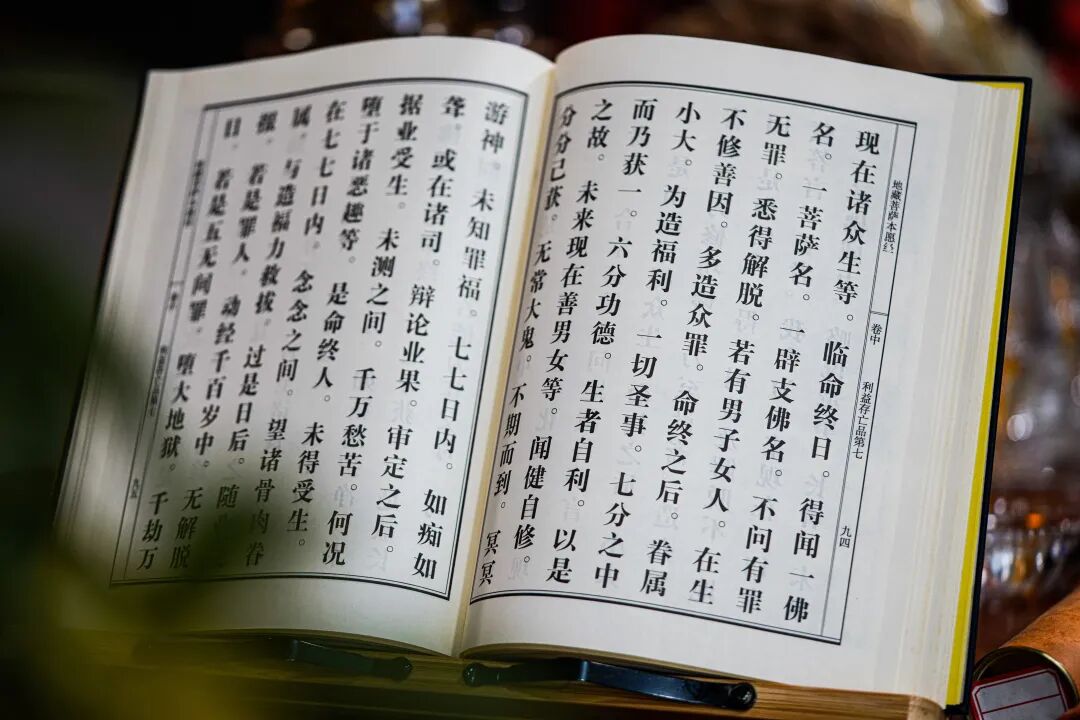 地藏菩萨本愿经 卷中 利益存亡品第七 九四
现在诸众生等。临命终日。得闻一佛
名。一菩萨名。一辟支佛名。不问有罪
无罪。悉得解脱。若有男子女人。在生
不修善因。多造众罪。命终之后。眷属
小大。为造福利。一切圣事。七分之中
而乃获一。六分功德。生者自利。以是
之故。未来现在善男女等。闻健自修。
分分己获。无常大鬼。不期而到。冥冥
游神。未知罪福。七七日内。如痴如
聋。或在诸司。辩论业果。审定之后。
据业受生。未测之间。千万愁苦。何况
堕于诸恶趣等。是命终人。未得受生。
在七七日内。念念之间。望诸骨肉眷
属。与造福力救拔。过是日后。随
报。若是罪人。动经千百岁中。无解脱
日。若是五无间罪。堕大地狱。千劫万